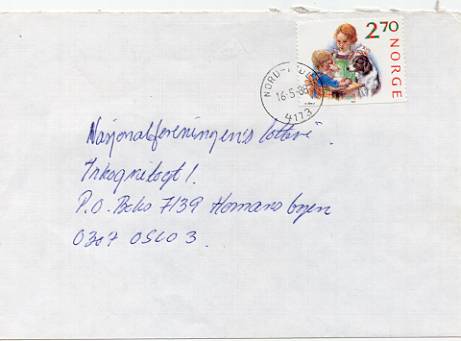 2 70
NORGE
16-5-88
4173
Nasjonalforeningens lotteri
Inkognitogt 1.
P.O. Boks 7139 Homansbyen
0307 OSLO 3.